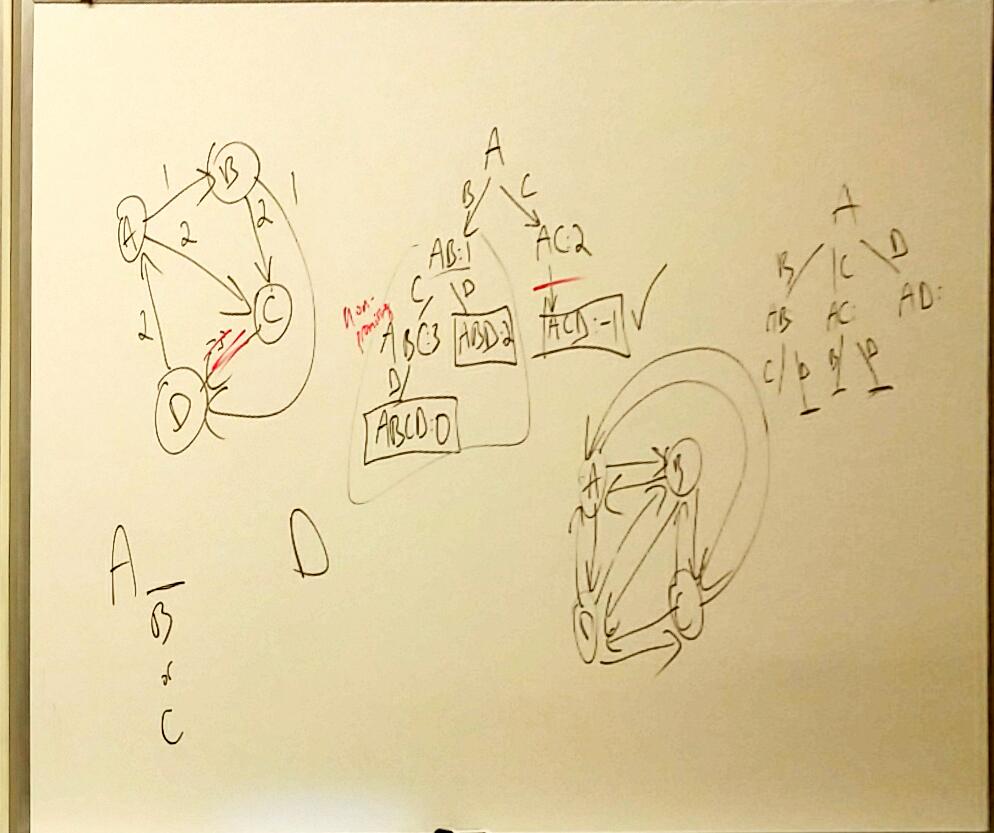 A
B
C
D
1
2
2
1
2
A
B
C
AB:1
AC:2
C
D
non-
promising
ABC:3
ABD:2
ACD:-1
D
ABCD:0
A
B
C
D
AB
AC:
AD:
C
D
B
D
A
B
D
A
D
B
or
C